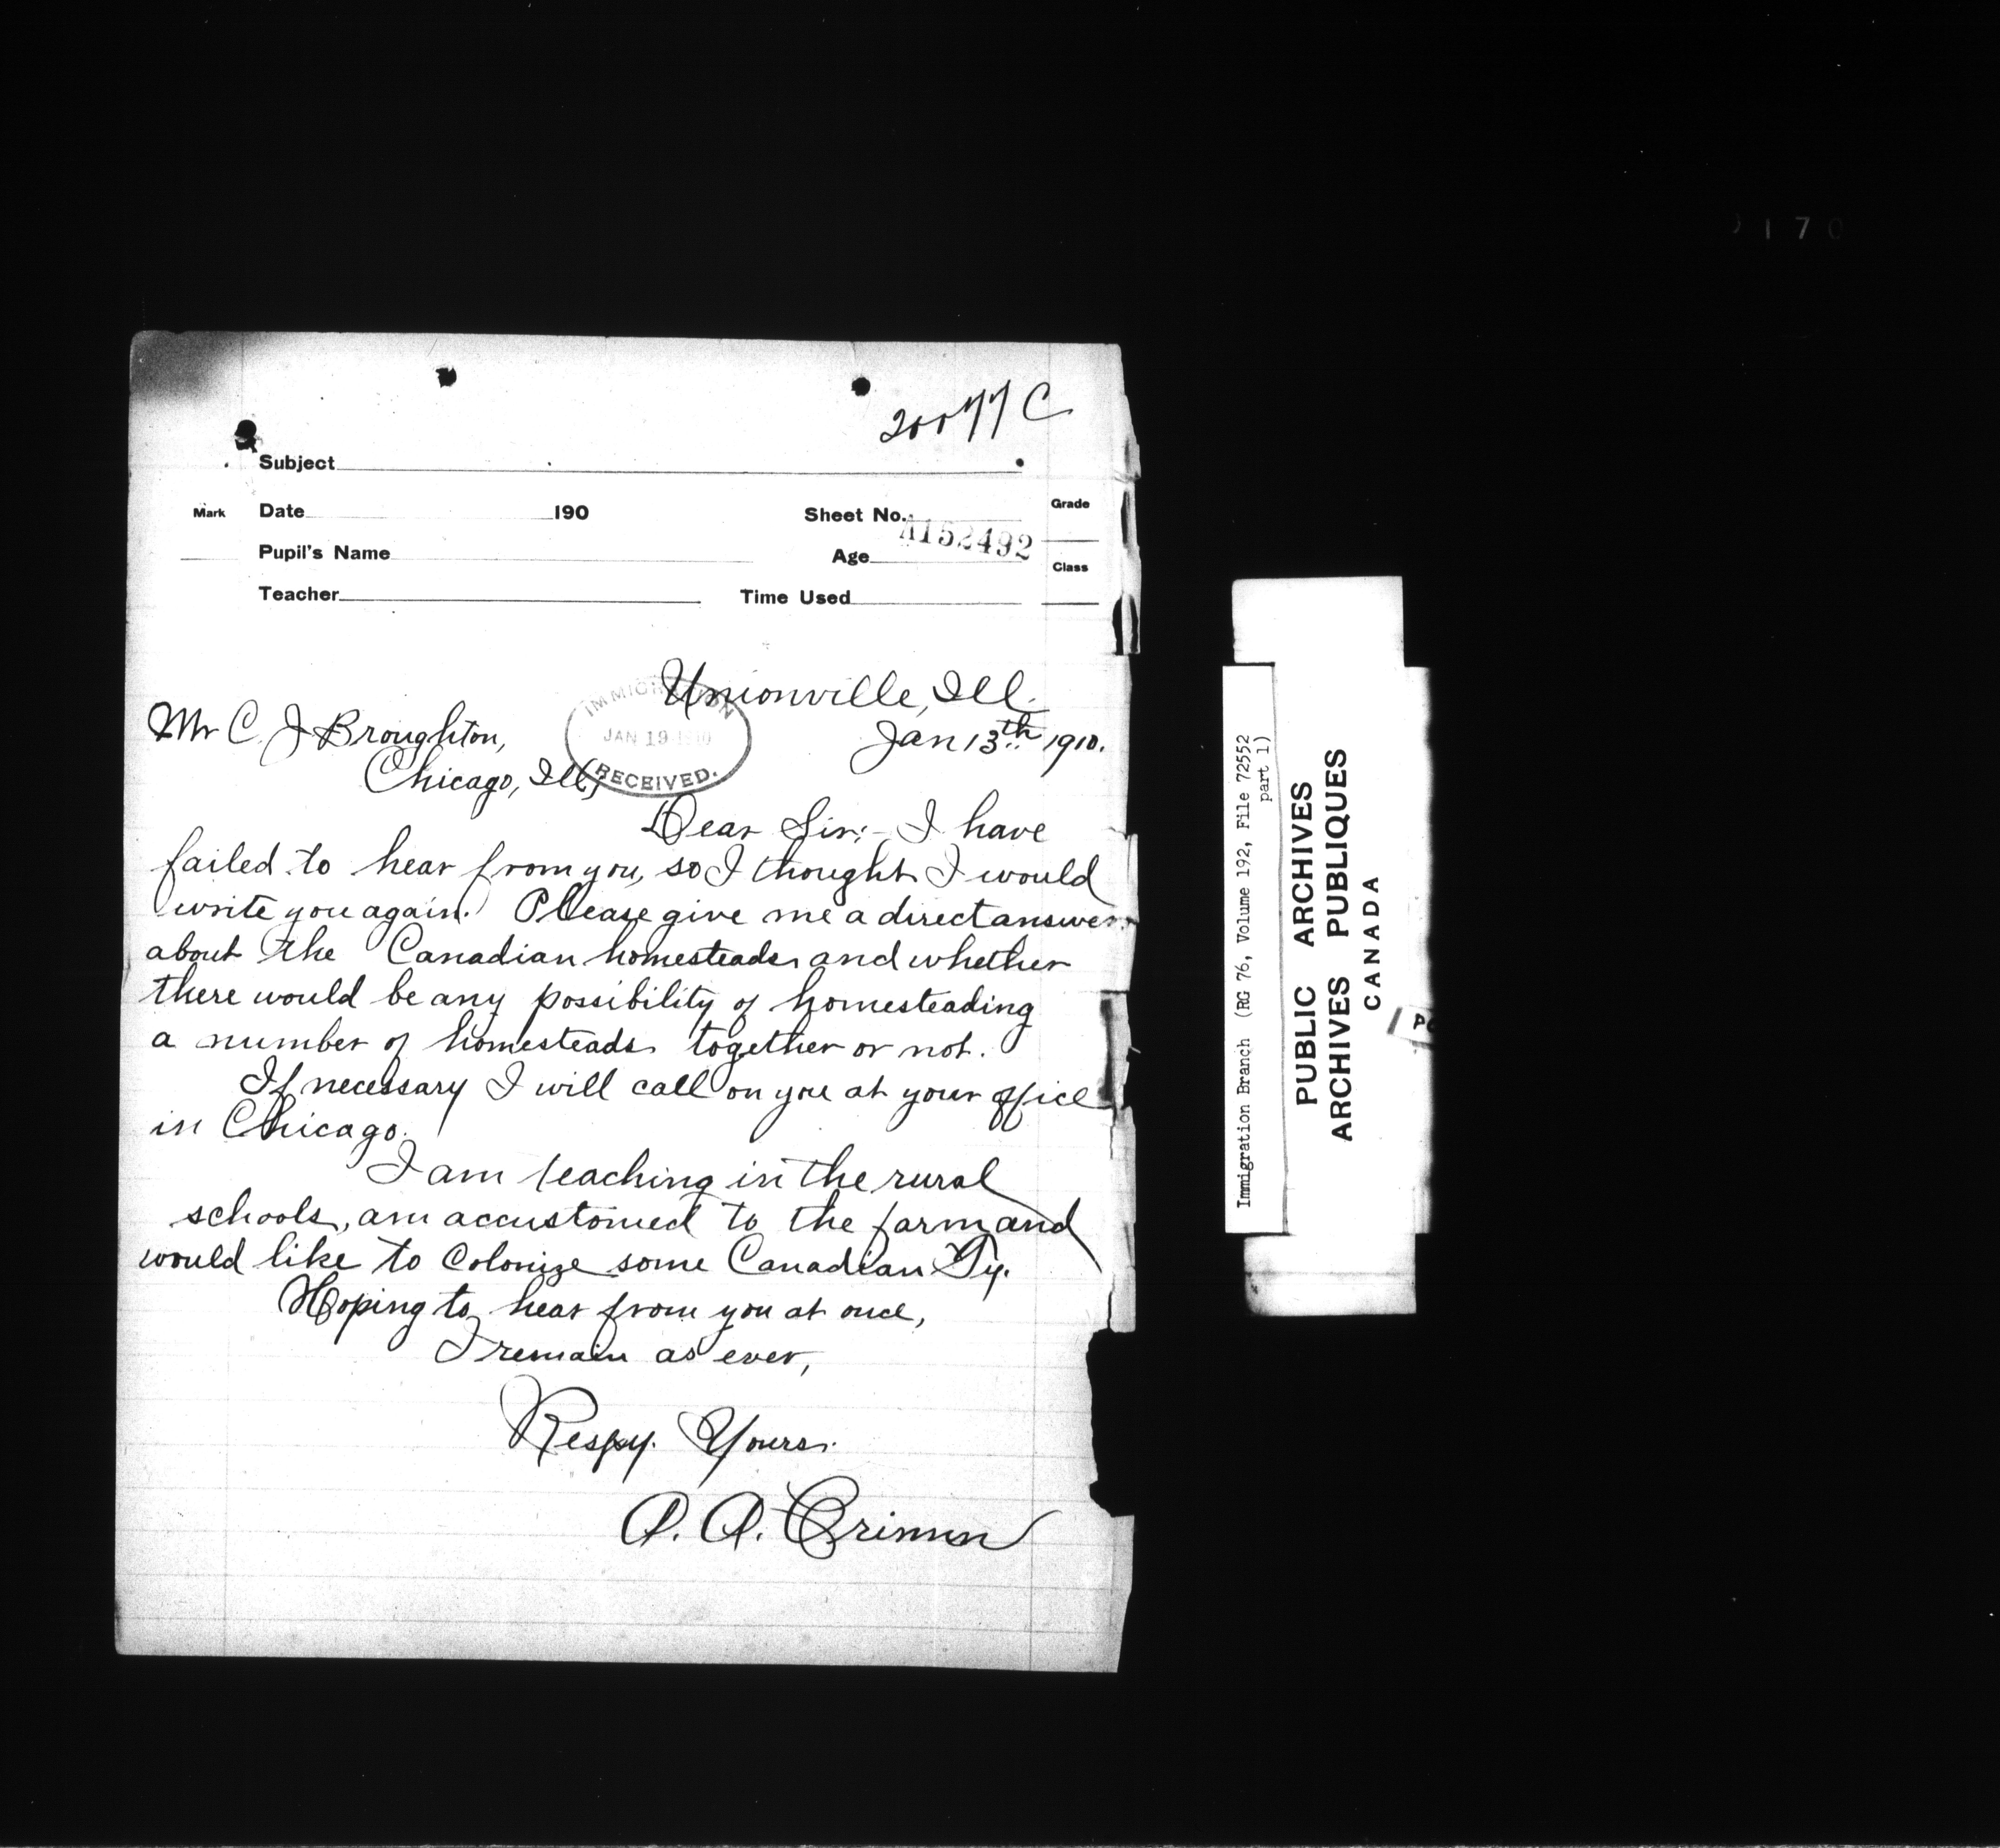 20077 C
Subject
Mark Date 190 Sheet No. Grade
A152492
Pupil's Name Age Class
Teacher Time Used
Unionville, Ill.
Mr C. J Broughton, Jan 13th 1910.
Chicago, Ill,
IMMIGRATION
JAN 19 1910
RECEIVED.
Dear Sir:- I have
failed to hear from you, so I thought I would
write you again. Please give me a direct answer
about the Canadian homesteads and whether
there would be any possibility of homesteading
a number of homesteads together or not.
If necessary I will call on you at your office
in Chicago.
I am teaching in the rural
schools, am accustomed to the farm and
would like to colonize some Canadian Ty.
Hoping to hear from you at once,
I remain as ever,
Respy. Yours.
A. A. Crimm
Immigration Branch (RG 76, Volume 192, File 72552
part 1)
PUBLIC ARCHIVES
ARCHIVES PUBLIQUES
CANADA